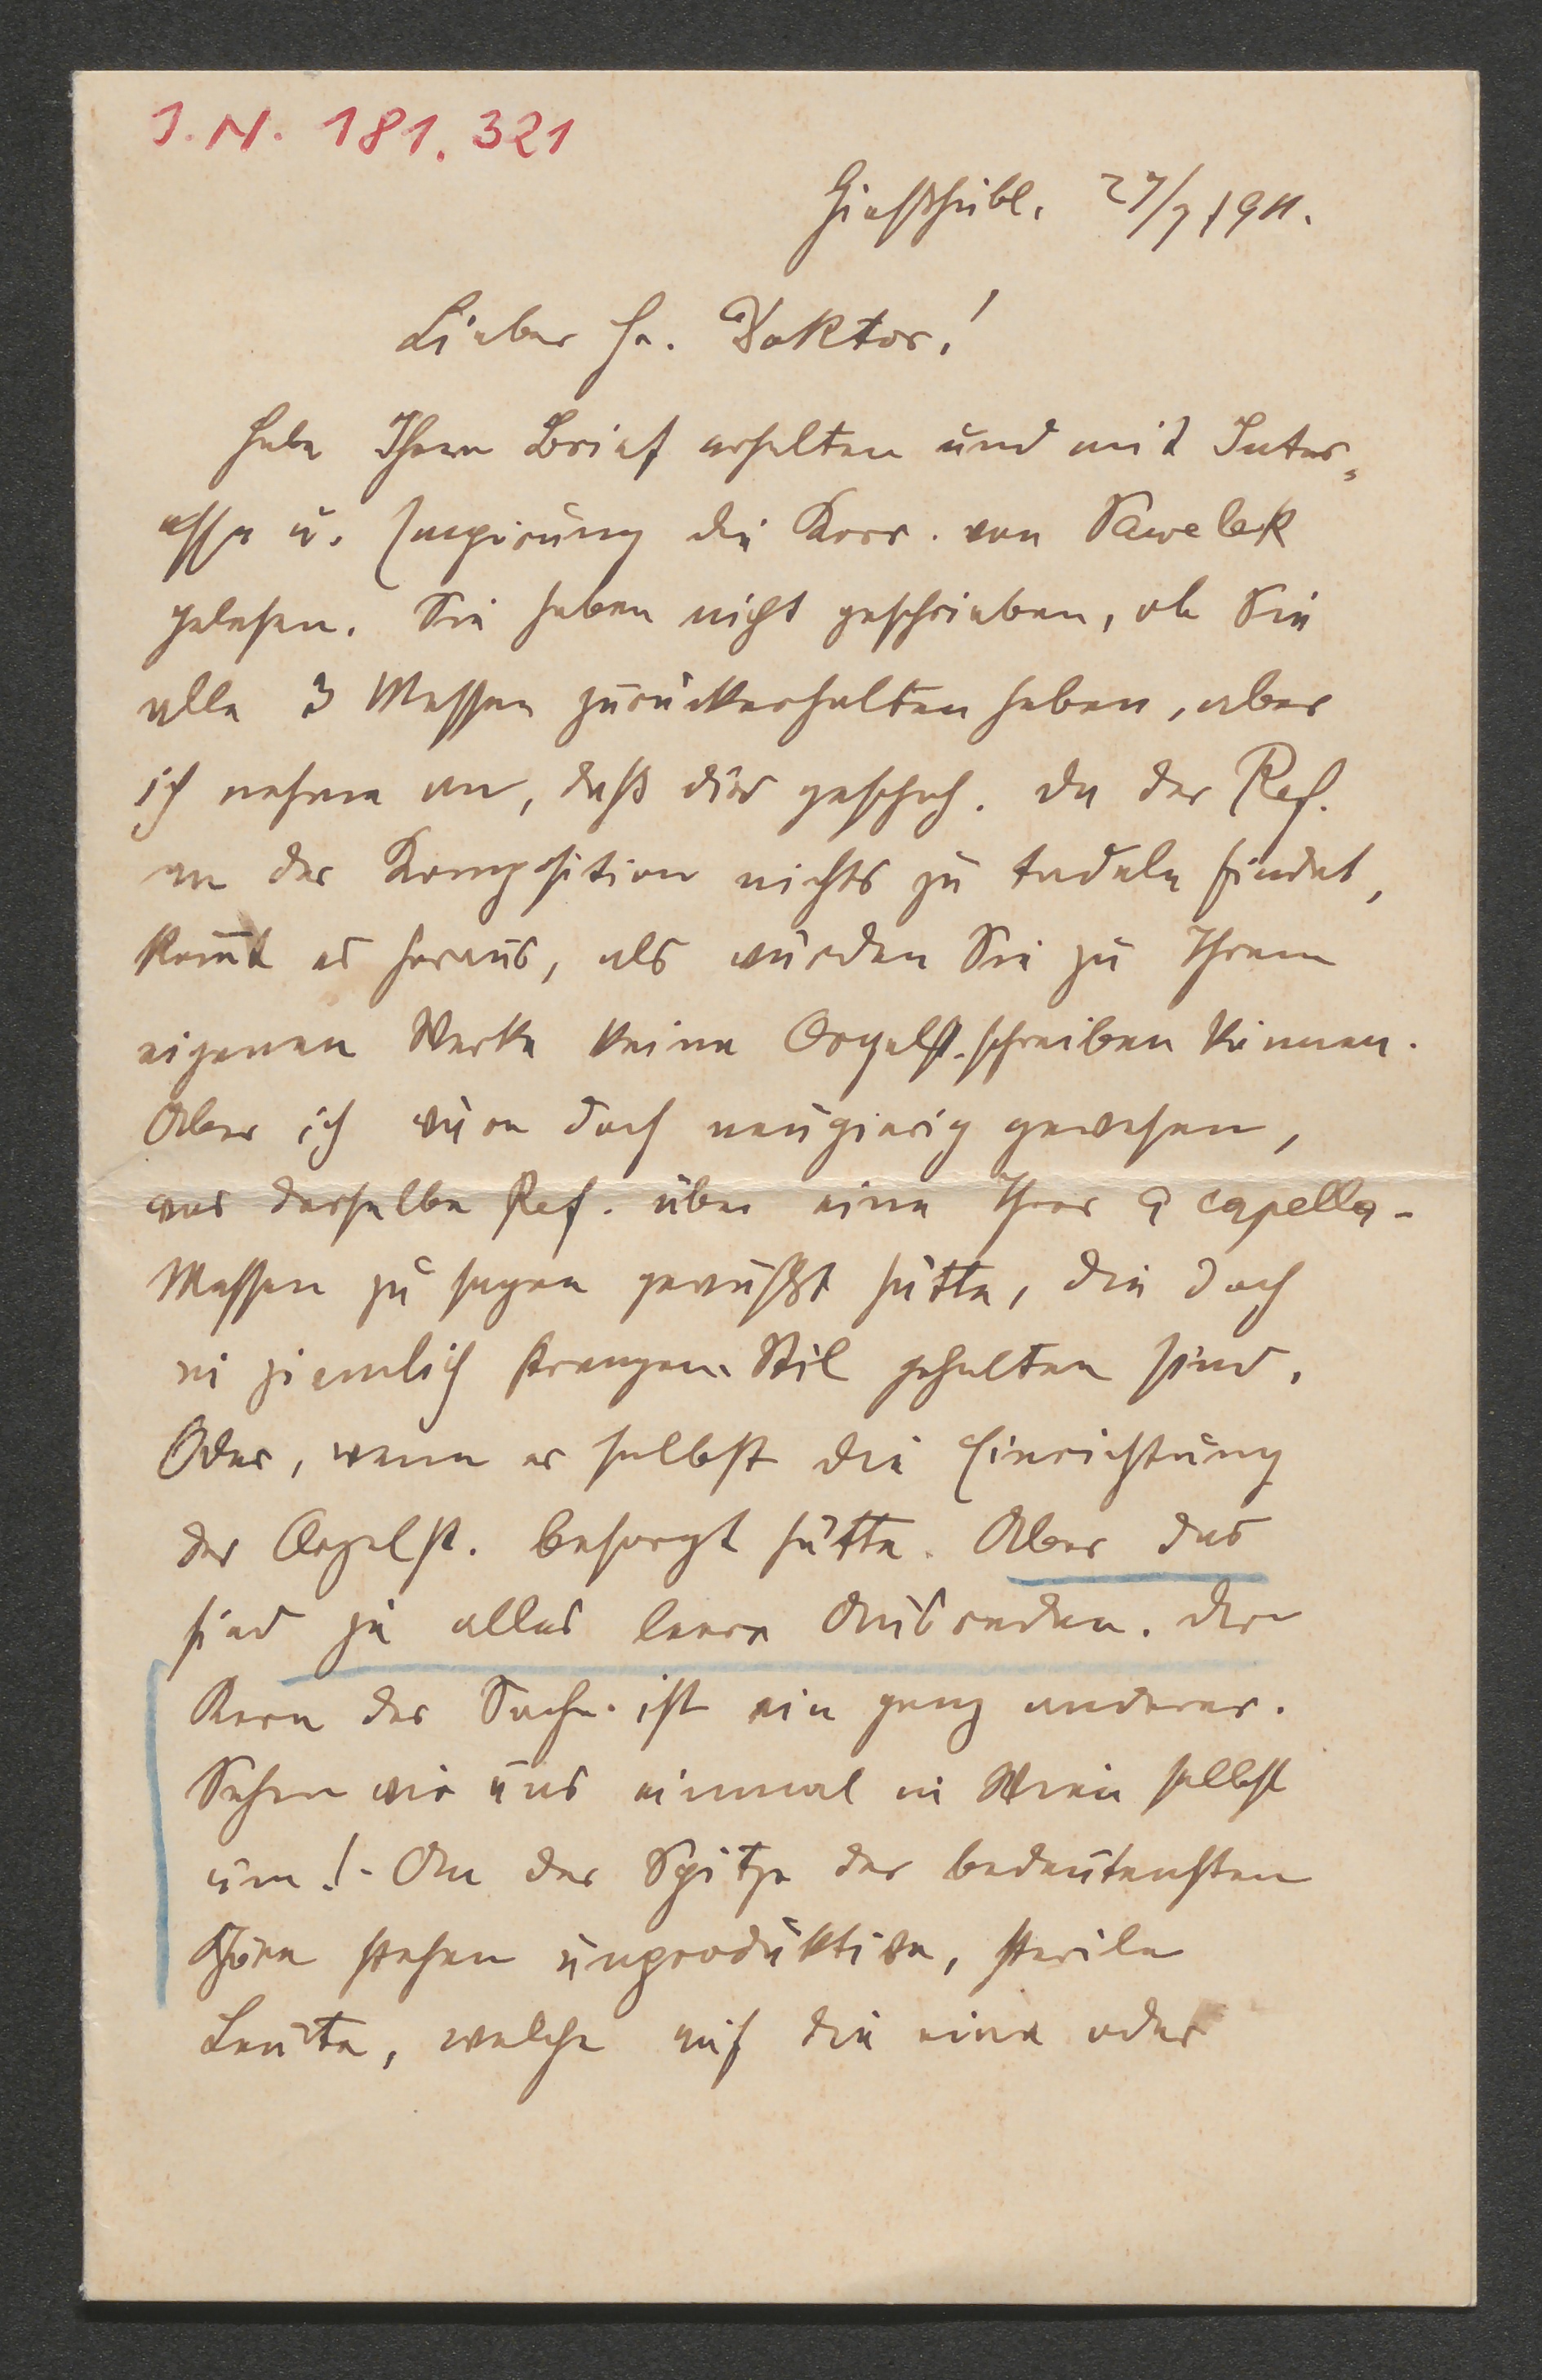 I.N. 181.321
Gießhübl, 27/7 1911.
Lieber Hr. Doktor!
Habe Ihren Brief erhalten und mit Inter-
esse u. die Korr. von Pawelek
gelesen. Sie haben nicht geschrieben, ob Sie
alle 3 Messen zurückerhalten haben, aber
ich nehme an, daß dies geschah. Da der Ref.
an der Komposition nichts zu tadeln findet,
kom̅t es heraus, als würden Sie zu Ihrem
eigenen Werke keine Orgelst. schreiben können.
Aber ich wäre doch neugierig gewesen,
was derselbe Ref. über eine Ihrer a capella-
Messen zu sagen gewußt hätte, die doch
in ziemlich strengem Stil gehalten sind.
Oder, wenn er selbst die Einrichtung
der Orgelst. besorgt hätte. Aber das
sind ja alles leere Ausreden. Der
Kern der Sache ist ein ganz anderer.
Sehen wir uns einmal in Wien selbst
um! - An der Spitze der bedeutensten
Chöre stehen unproduktive, sterile
Leute, welche auf die eine oder